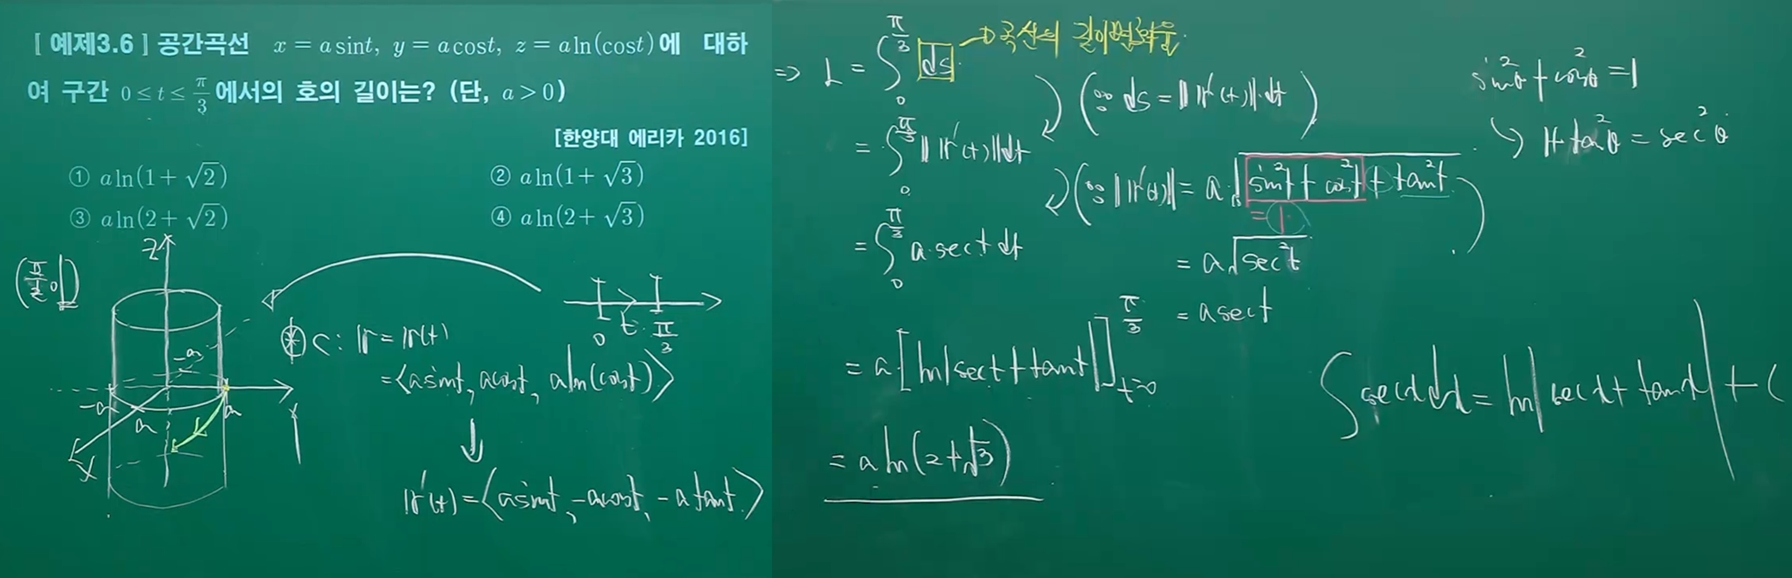 [ 예제3.6 ] 공간곡선 x = a sint, y = a cost, z = a ln(cost)에 대하
여 구간 0 ≤ t ≤ π/3 에서의 호의 길이는? (단, a > 0)
[한양대 에리카 2016]
① a ln(1+√2)
② a ln(1+√3)
③ a ln(2+√2)
④ a ln(2+√3)
Z
0 t π/3
-a
-a a
a
X
Y
C : r = r(t)
= <a sint, a cost, a ln(cost)>
↓
r'(t) = <a sint, -a cost, -a tant>
⇒ L = ∫₀^(π/3) ds → 곡선의 길이
(∵ ds = ‖r'(t)‖ dt)
= ∫₀^(π/3) ‖r'(t)‖ dt
(∵ ‖r'(t)‖ = a√(sin²t + cos²t + tan²t)
= 1
= a√(sec²t)
= a sect
= ∫₀^(π/3) a·sect dt
= a [ln|sect + tant|]_(t=0)^(π/3)
= a ln(2+√3)
sin²θ + cos²θ = 1
1+tan²θ = sec²θ
∫ secx dx = ln|secx + tanx| + C